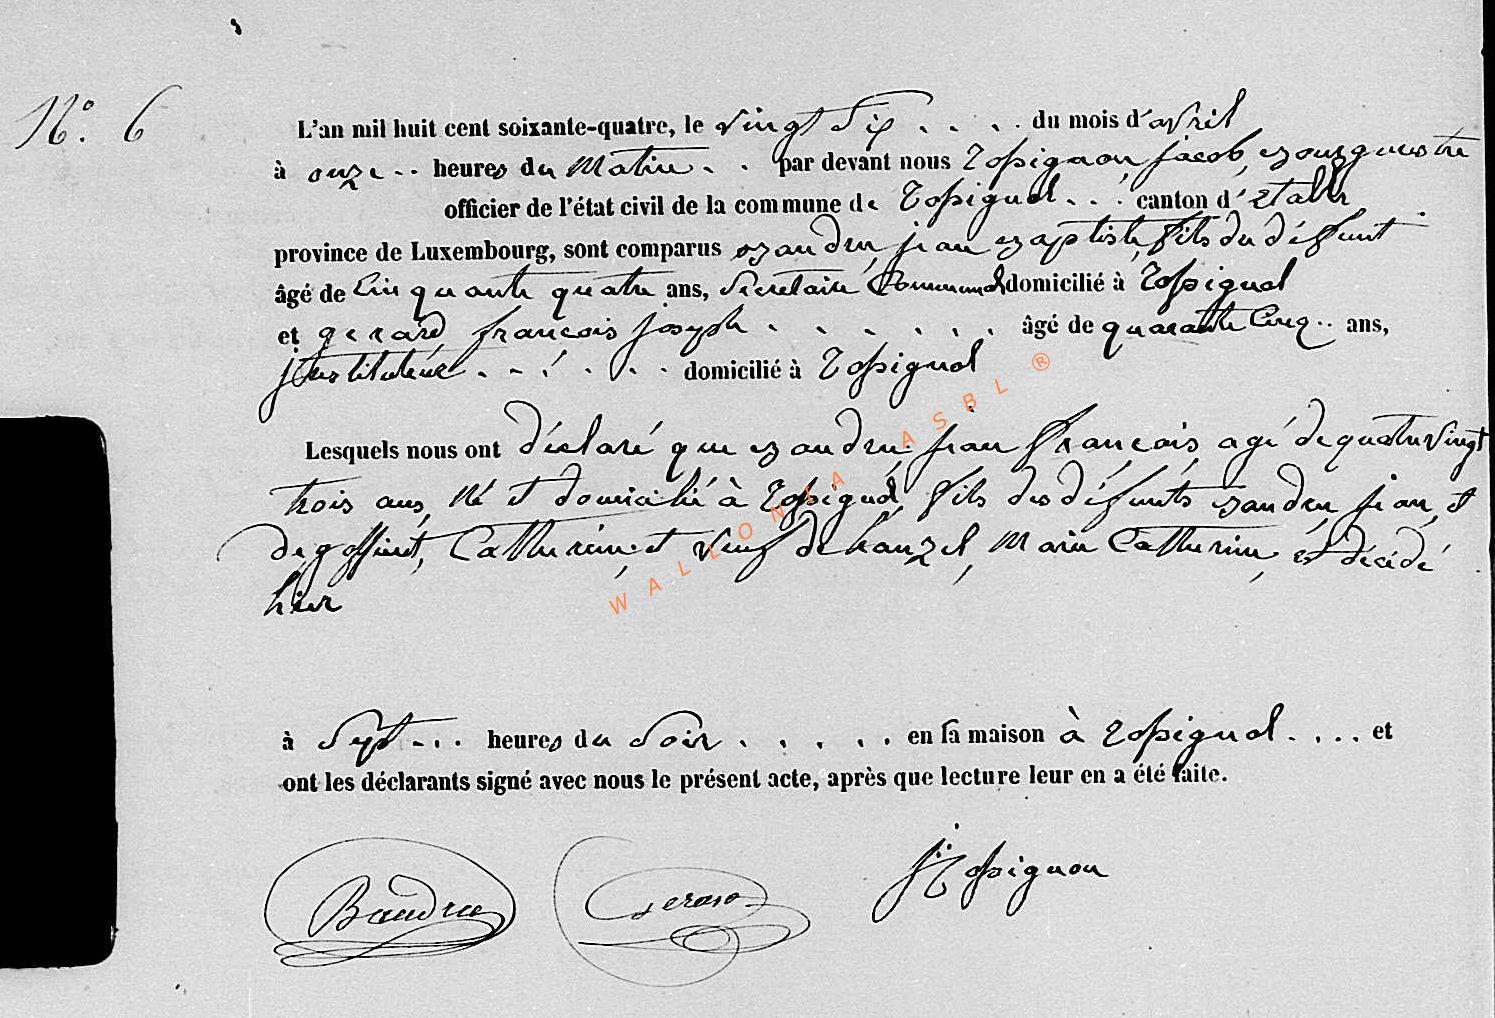 N°. 6
L'an mil huit cent soixante-quatre, le vingt Six . . . . du mois d'avril
à onze .. heures du Matin . . par devant nous Rossignon, jacob, Bourgmestre
officier de l'état civil de la commune de Rossignol . . . canton d'Etalle
province de Luxembourg, sont comparus Baudru, jean Baptiste, fils du défunt
âgé de Cinquante quatre ans, Secrétaire Communal domicilié à Rossignol
et gerard françois joseph . . . . . . . âgé de quarante Cinq .. ans,
jnstituteur . . . . . . domicilié à Rossignol
Lesquels nous ont déclaré que Baudru, jean François, agé de quatre Vingt
trois ans, Né et domicilié à Rossignol, fils des défunts Baudru, jean, et
de goffinet, Catherine, et Veuf de hanzel, Marie Catherine, est décédé
hier
à Sept ... heures du Soir . . . . . en sa maison à Rossignol . . . . et
ont les déclarants signé avec nous le présent acte, après que lecture leur en a été faite.
Baudru Gerard J. Rossignon
WALLONIA ASBL ®